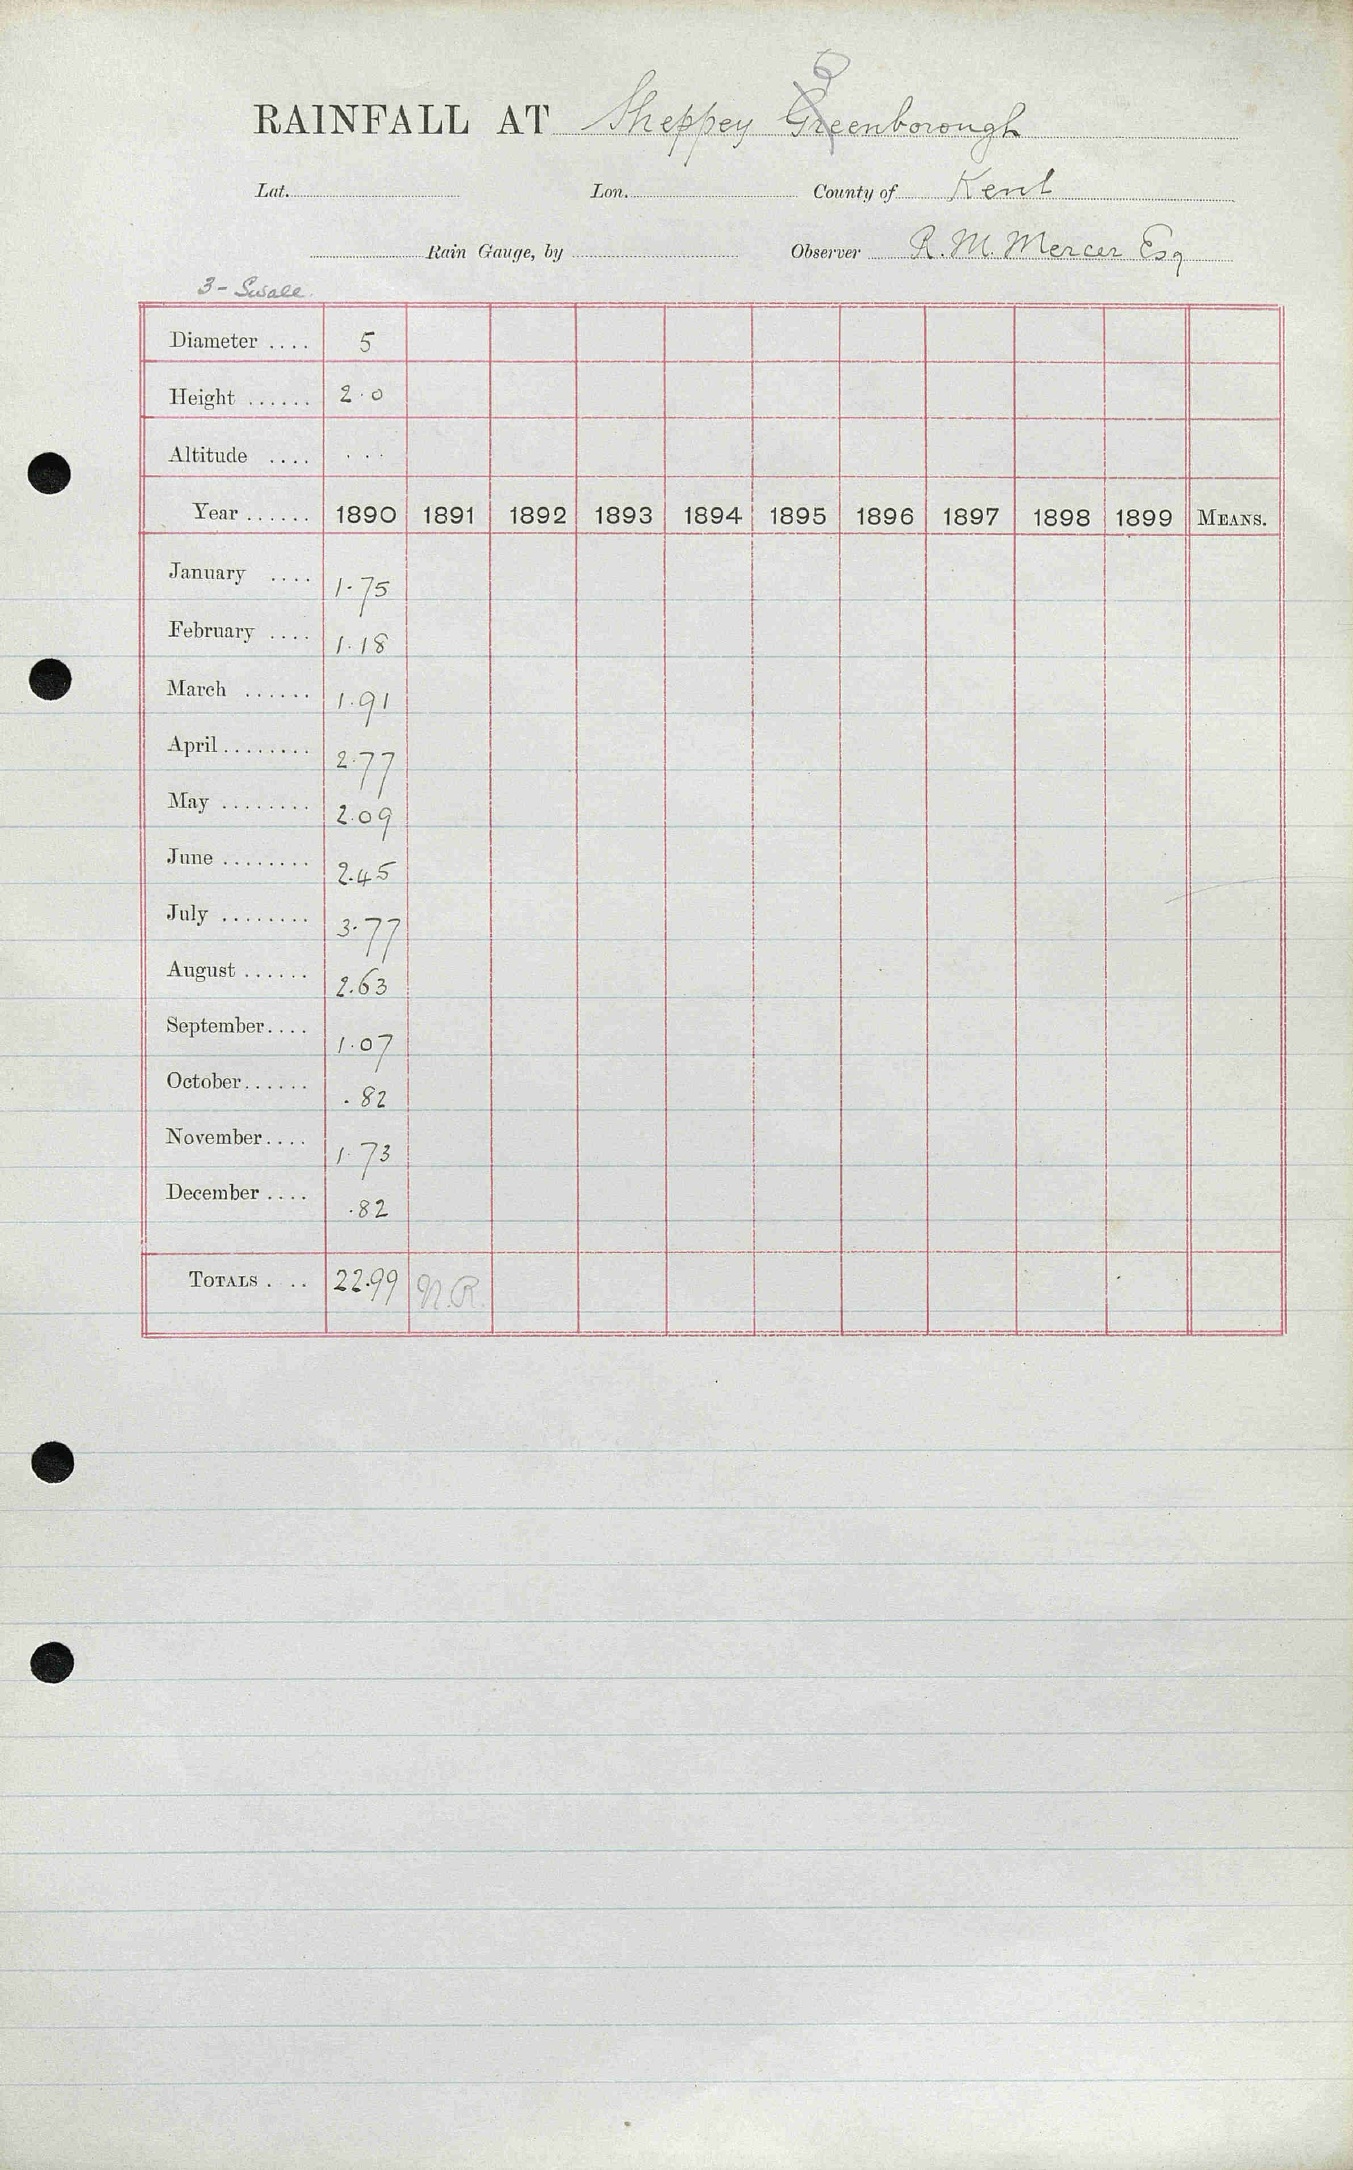 RAINFALL AT Sheppey Greenborough
Lat. Lon. County of Kent
Rain Gauge, by Observer R. M. Mercer Esq
3 - Swale.
Diameter .... 5
Height ...... 2.0
Altitude .... ...
Year ...... 1890 1891 1892 1893 1894 1895 1896 1897 1898 1899 MEANS.
January .... 1.75
February .... 1.18
March ...... 1.91
April ........ 2.77
May ........ 2.09
June ........ 2.45
July ........ 3.77
August ...... 2.63
September.... 1.07
October...... .82
November.... 1.73
December .... .82
TOTALS . .. 22.99 N.R.